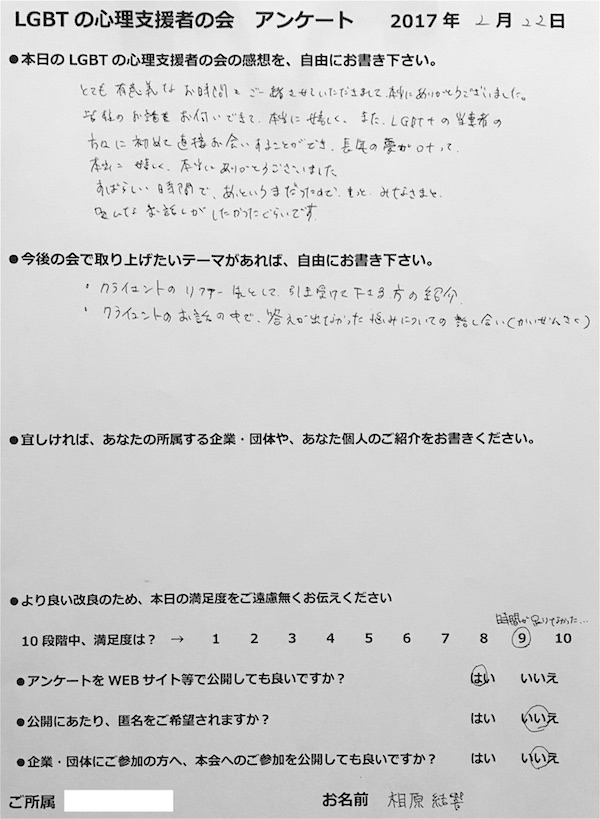 LGBTの心理支援者の会 アンケート 2017年 2月 22日
●本日のLGBTの心理支援者の会の感想を、自由にお書き下さい。
とても有意義なお時間をご一緒させていただきまして、本当にありがとうございました。
皆様のお話をお伺いできて、本当に嬉しく、また、LGBT+の当事者の
方々に初めて直接お会いすることができ、長年の夢が叶って、
本当に嬉しく、本当にありがとうございました
すばらしい時間で、あっというまだったので、もっと、みなさまと、
お話しがしたかったぐらいです
●今後の会で取り上げたいテーマがあれば、自由にお書き下さい。
・クライエントのリファー先として、引き受けて下さる方の紹介
・クライエントのお話の中で、答えが出なかった悩みについての話し合い(かいぜんさく)
●宜しければ、あなたの所属する企業・団体や、あなた個人のご紹介をお書きください。
●より良い改良のため、本日の満足度をご遠慮無くお伝えください
時間が足りなかった…
10段階中、満足度は? → 1 2 3 4 5 6 7 8 9 10
●アンケートをWEBサイト等で公開しても良いですか? はい いいえ
●公開にあたり、匿名をご希望されますか? はい いいえ
●企業・団体にご参加の方へ、本会へのご参加を公開しても良いですか? はい いいえ
ご所属 お名前 相原 結響